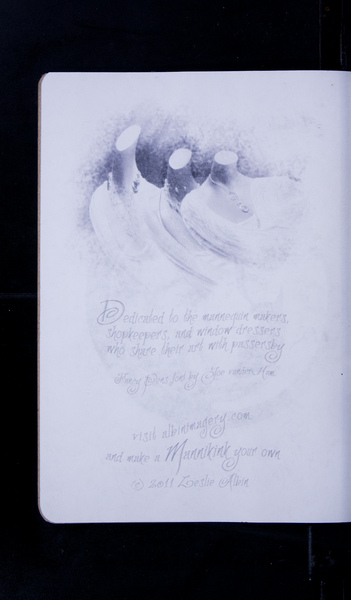 Dedicated to the mannequin makers,
shopkeepers, and window dressers
who share their art with passersby
Fancy Pens font by
visit albinimagery.com
and make a Mannikink your own
© 2011 Leslie Albin